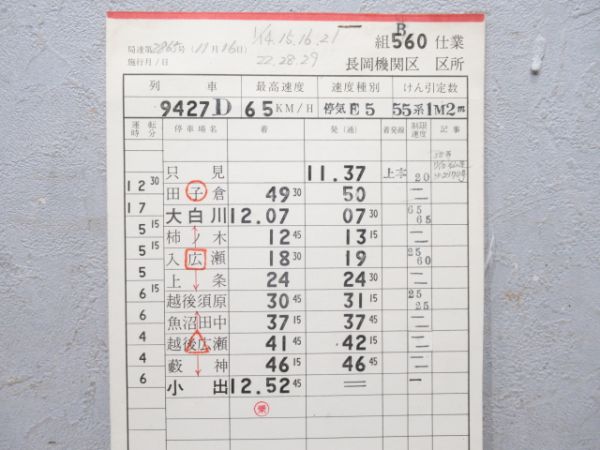 1/14.15.16.21
B
組560 仕業
局達第2865号(11月16日)
22.28.29
施行月/日
長岡機関区 区所
列 車 最高速度 速度種別 けん引定数
9427D 65KM/H 停気E5 55系1M2
運転時分 停車場名 着 発(通) 着発線 制限速度 記事
只見 11.37 上本 20
12 30
田子倉 49 30 50 二
17
大白川 12.07 07 30 65 65
5 15
柿ノ木 12 45 13 15 二
5 15
入広瀬 18 30 19 25 60
5
上条 24 24 30 二
6 15
越後須原 30 45 31 15 25 25
6
魚沼田中 37 15 37 45 二
4
越後広瀬 41 45 42 15 二
4
藪神 46 15 46 45 二
6
小出 12.52 45 = 一
乗